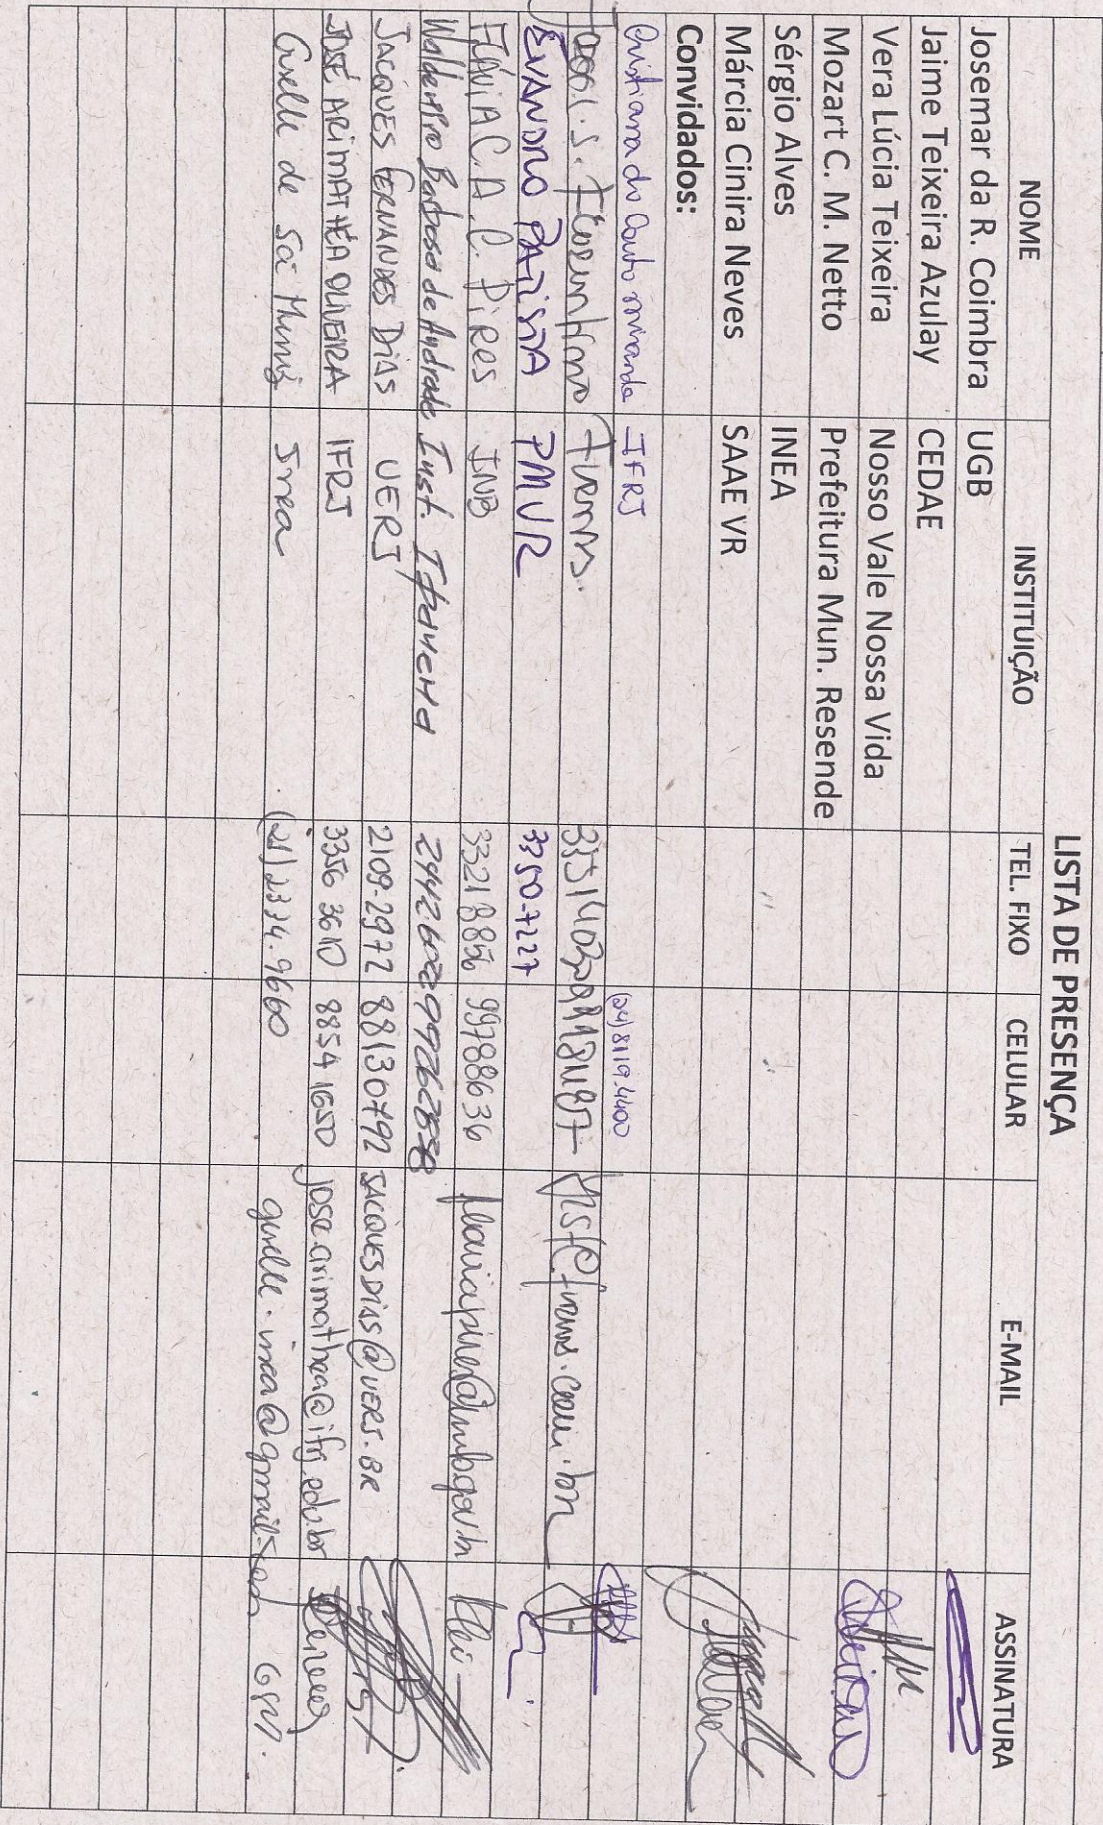 LISTA DE PRESENÇA
NOME INSTITUIÇÃO TEL. FIXO CELULAR E-MAIL ASSINATURA
Josemar da R. Coimbra UGB
Jaime Teixeira Azulay CEDAE
Vera Lúcia Teixeira Nosso Vale Nossa Vida
Mozart C. M. Netto Prefeitura Mun. Resende
Sérgio Alves INEA
Márcia Cinira Neves SAAE VR
Convidados:
Cristiana do Couto Miranda IFRJ (24) 8119.4400
S. Furnas.
EVANDRO BATISTA PMVR 3350-7227
FLÁVIA C. A. C. PIRES INB 3321 8856 99788636
Waldemiro Barbosa de Andrade Inst. Ipanema
JACQUES FERNANDES DIAS UERJ 2109-2972 88130792 JACQUESDIAS@UERJ.BR
JOSÉ ARIMATHÉA OLIVEIRA IFRJ 3356 3610 8854 1650 jose.arimathea@ifrj.edu.br
de Sá Inea (21) 2334.9660